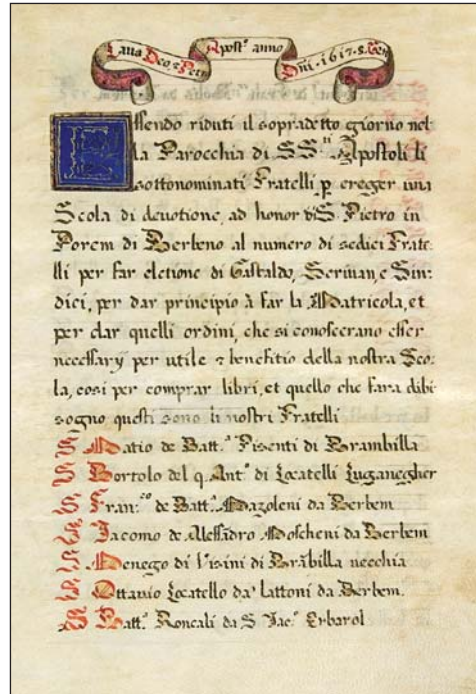 Laus Deo, & Petro Apost.º anno Dñi. 1617. 8.
Essendo riduti il sopradetto giorno nel-
la Parocchia di SS.ti Apostoli li
sottonominati Fratelli p̱ ereger una
Scola di deuotione, ad honor di S. Pietro in
Porem di Berbeno al numero di sedici Frate-
lli per far eletione di Gastaldo, Scriuan, e Sin-
dici, per dar principio à far la Matricola, et
per dar quelli ordini, che si conoscerano esser
necessarÿ per utile & benefitio della nostra Sco-
la, cosi per comprar libri, et quello che fara dibi-
sogno questi sono li nostri Fratelli
Batt.ª Pisenti di Brambilla
Bortolo del q. Ant.º di Locatelli Luganegher
Fran.co de Batt.ª Mazoleni da Berbem
Iacomo de Alessãdro Moscheni da Berbem
Menego di Visini di Brãbilla uecchia
Ottauio Locatello da' lattoni da Berbem.
Batt.ª Roncali da S. Iac.º Erbarol